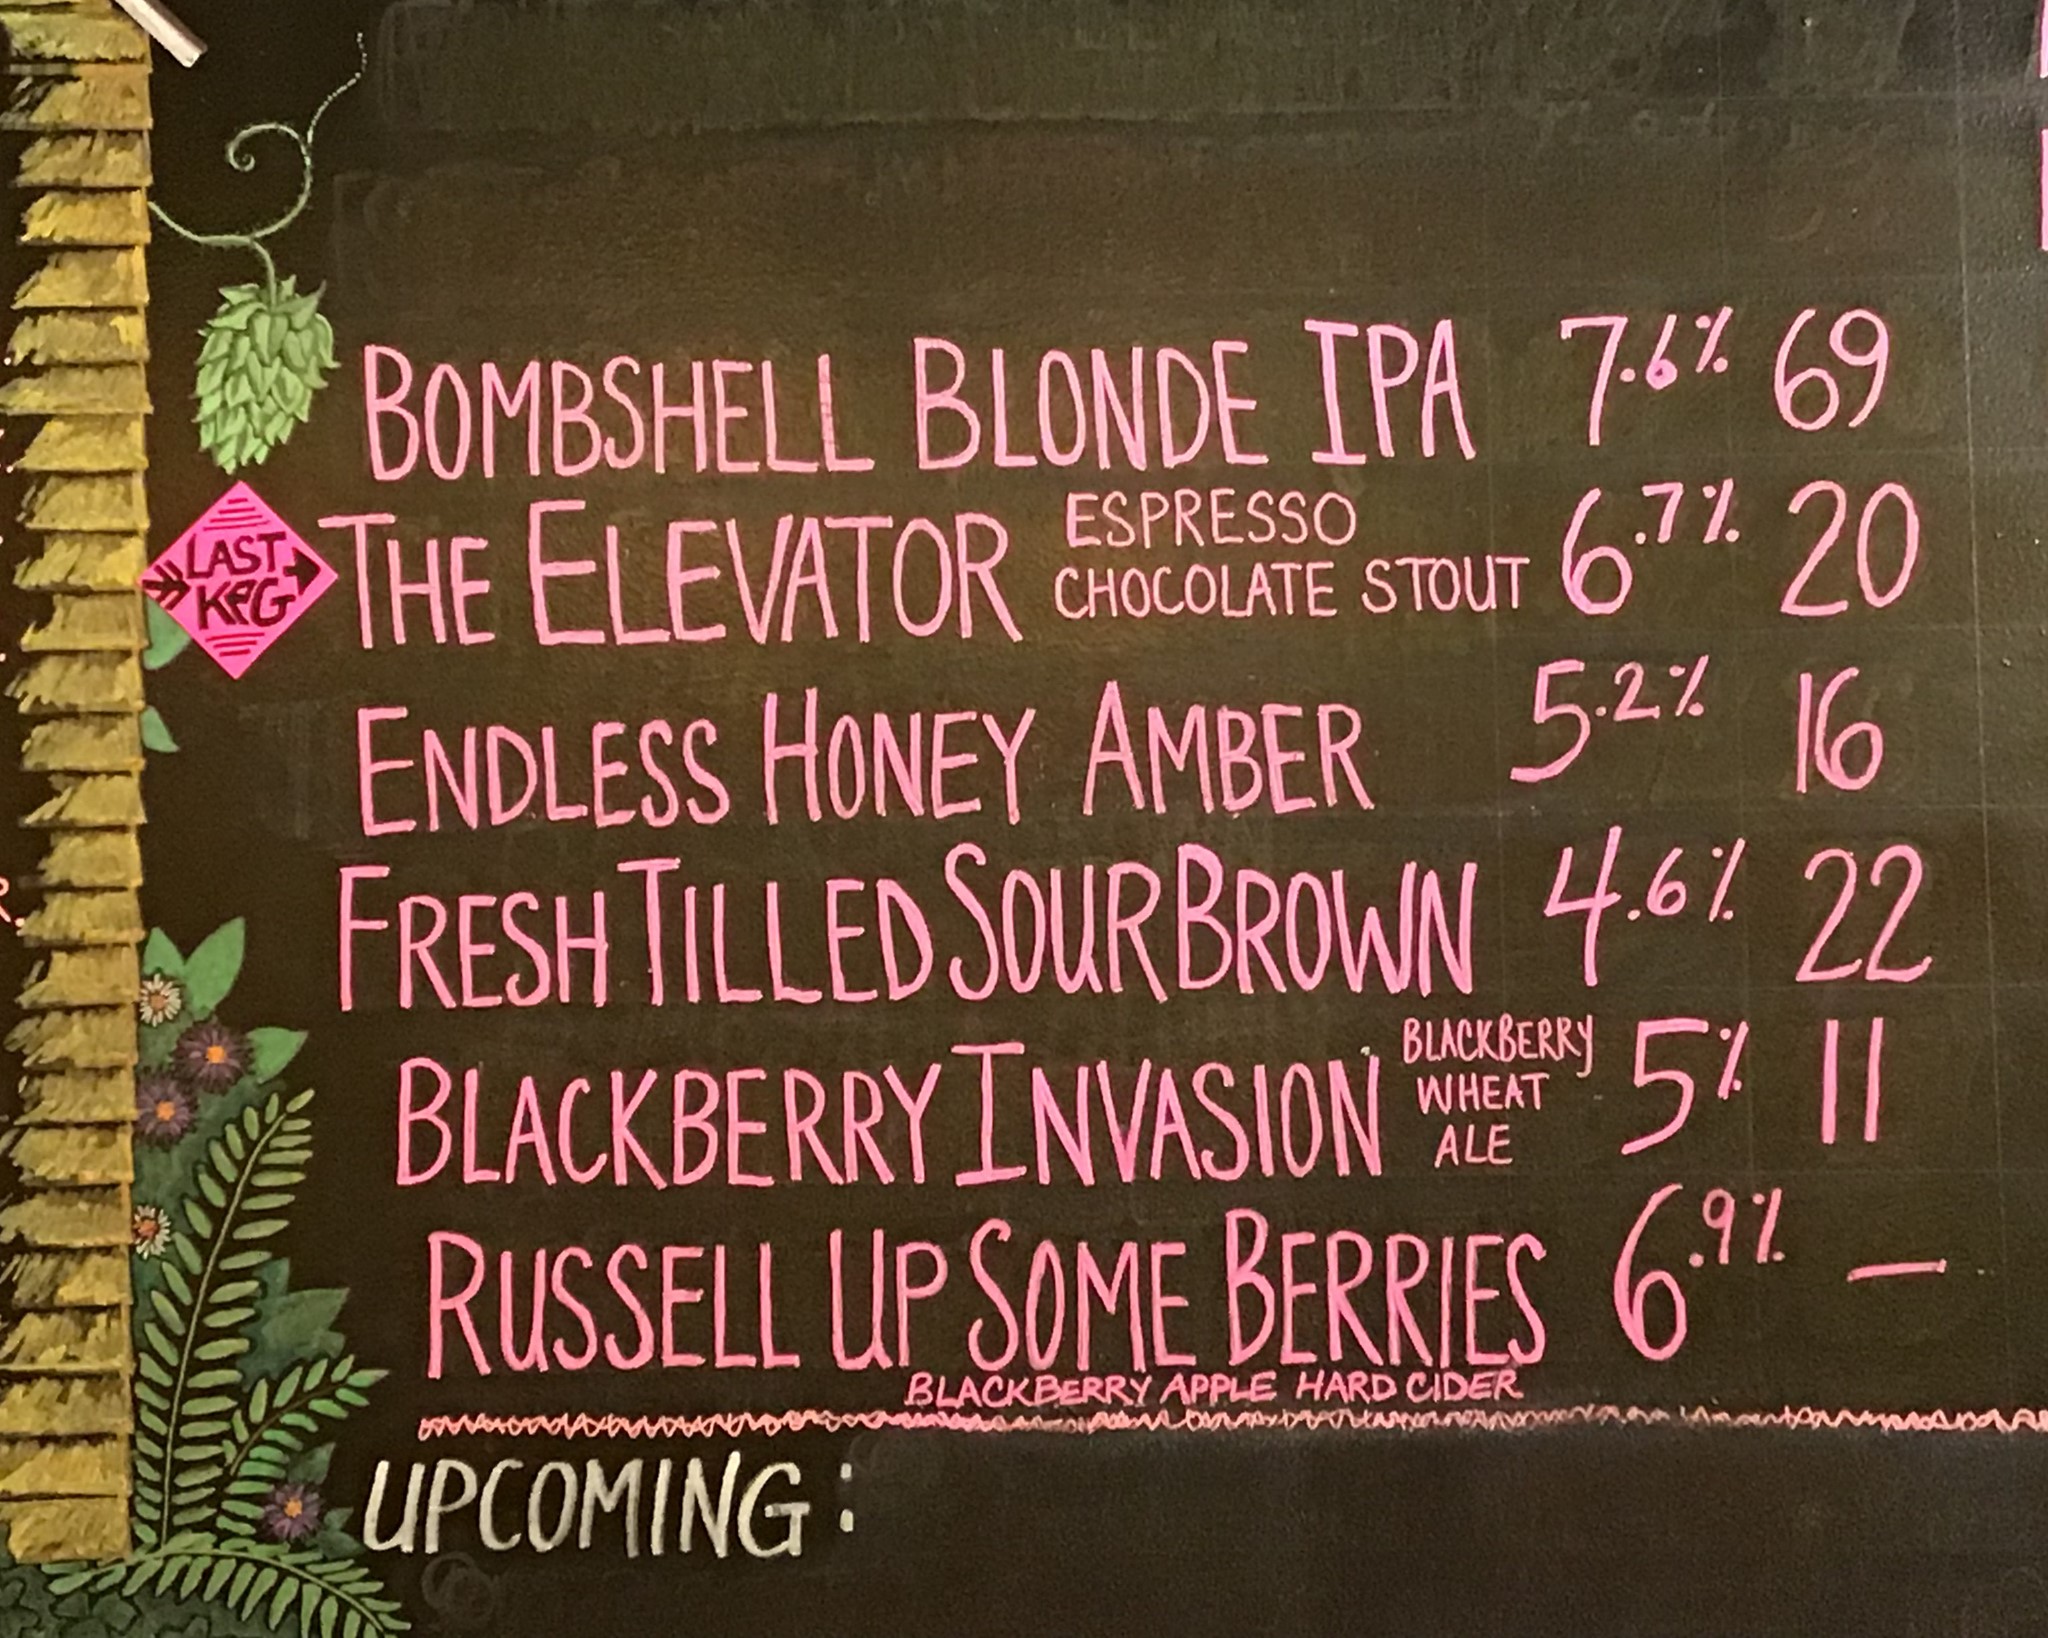 BOMBSHELL BLONDE IPA 7.6% 69
LAST KEG
THE ELEVATOR ESPRESSO CHOCOLATE STOUT 6.7% 20
ENDLESS HONEY AMBER 5.2% 16
FRESH TILLED SOUR BROWN 4.6% 22
BLACKBERRY INVASION BLACKBERRY WHEAT ALE 5% 11
RUSSELL UP SOME BERRIES 6.9% —
BLACKBERRY APPLE HARD CIDER
UPCOMING: